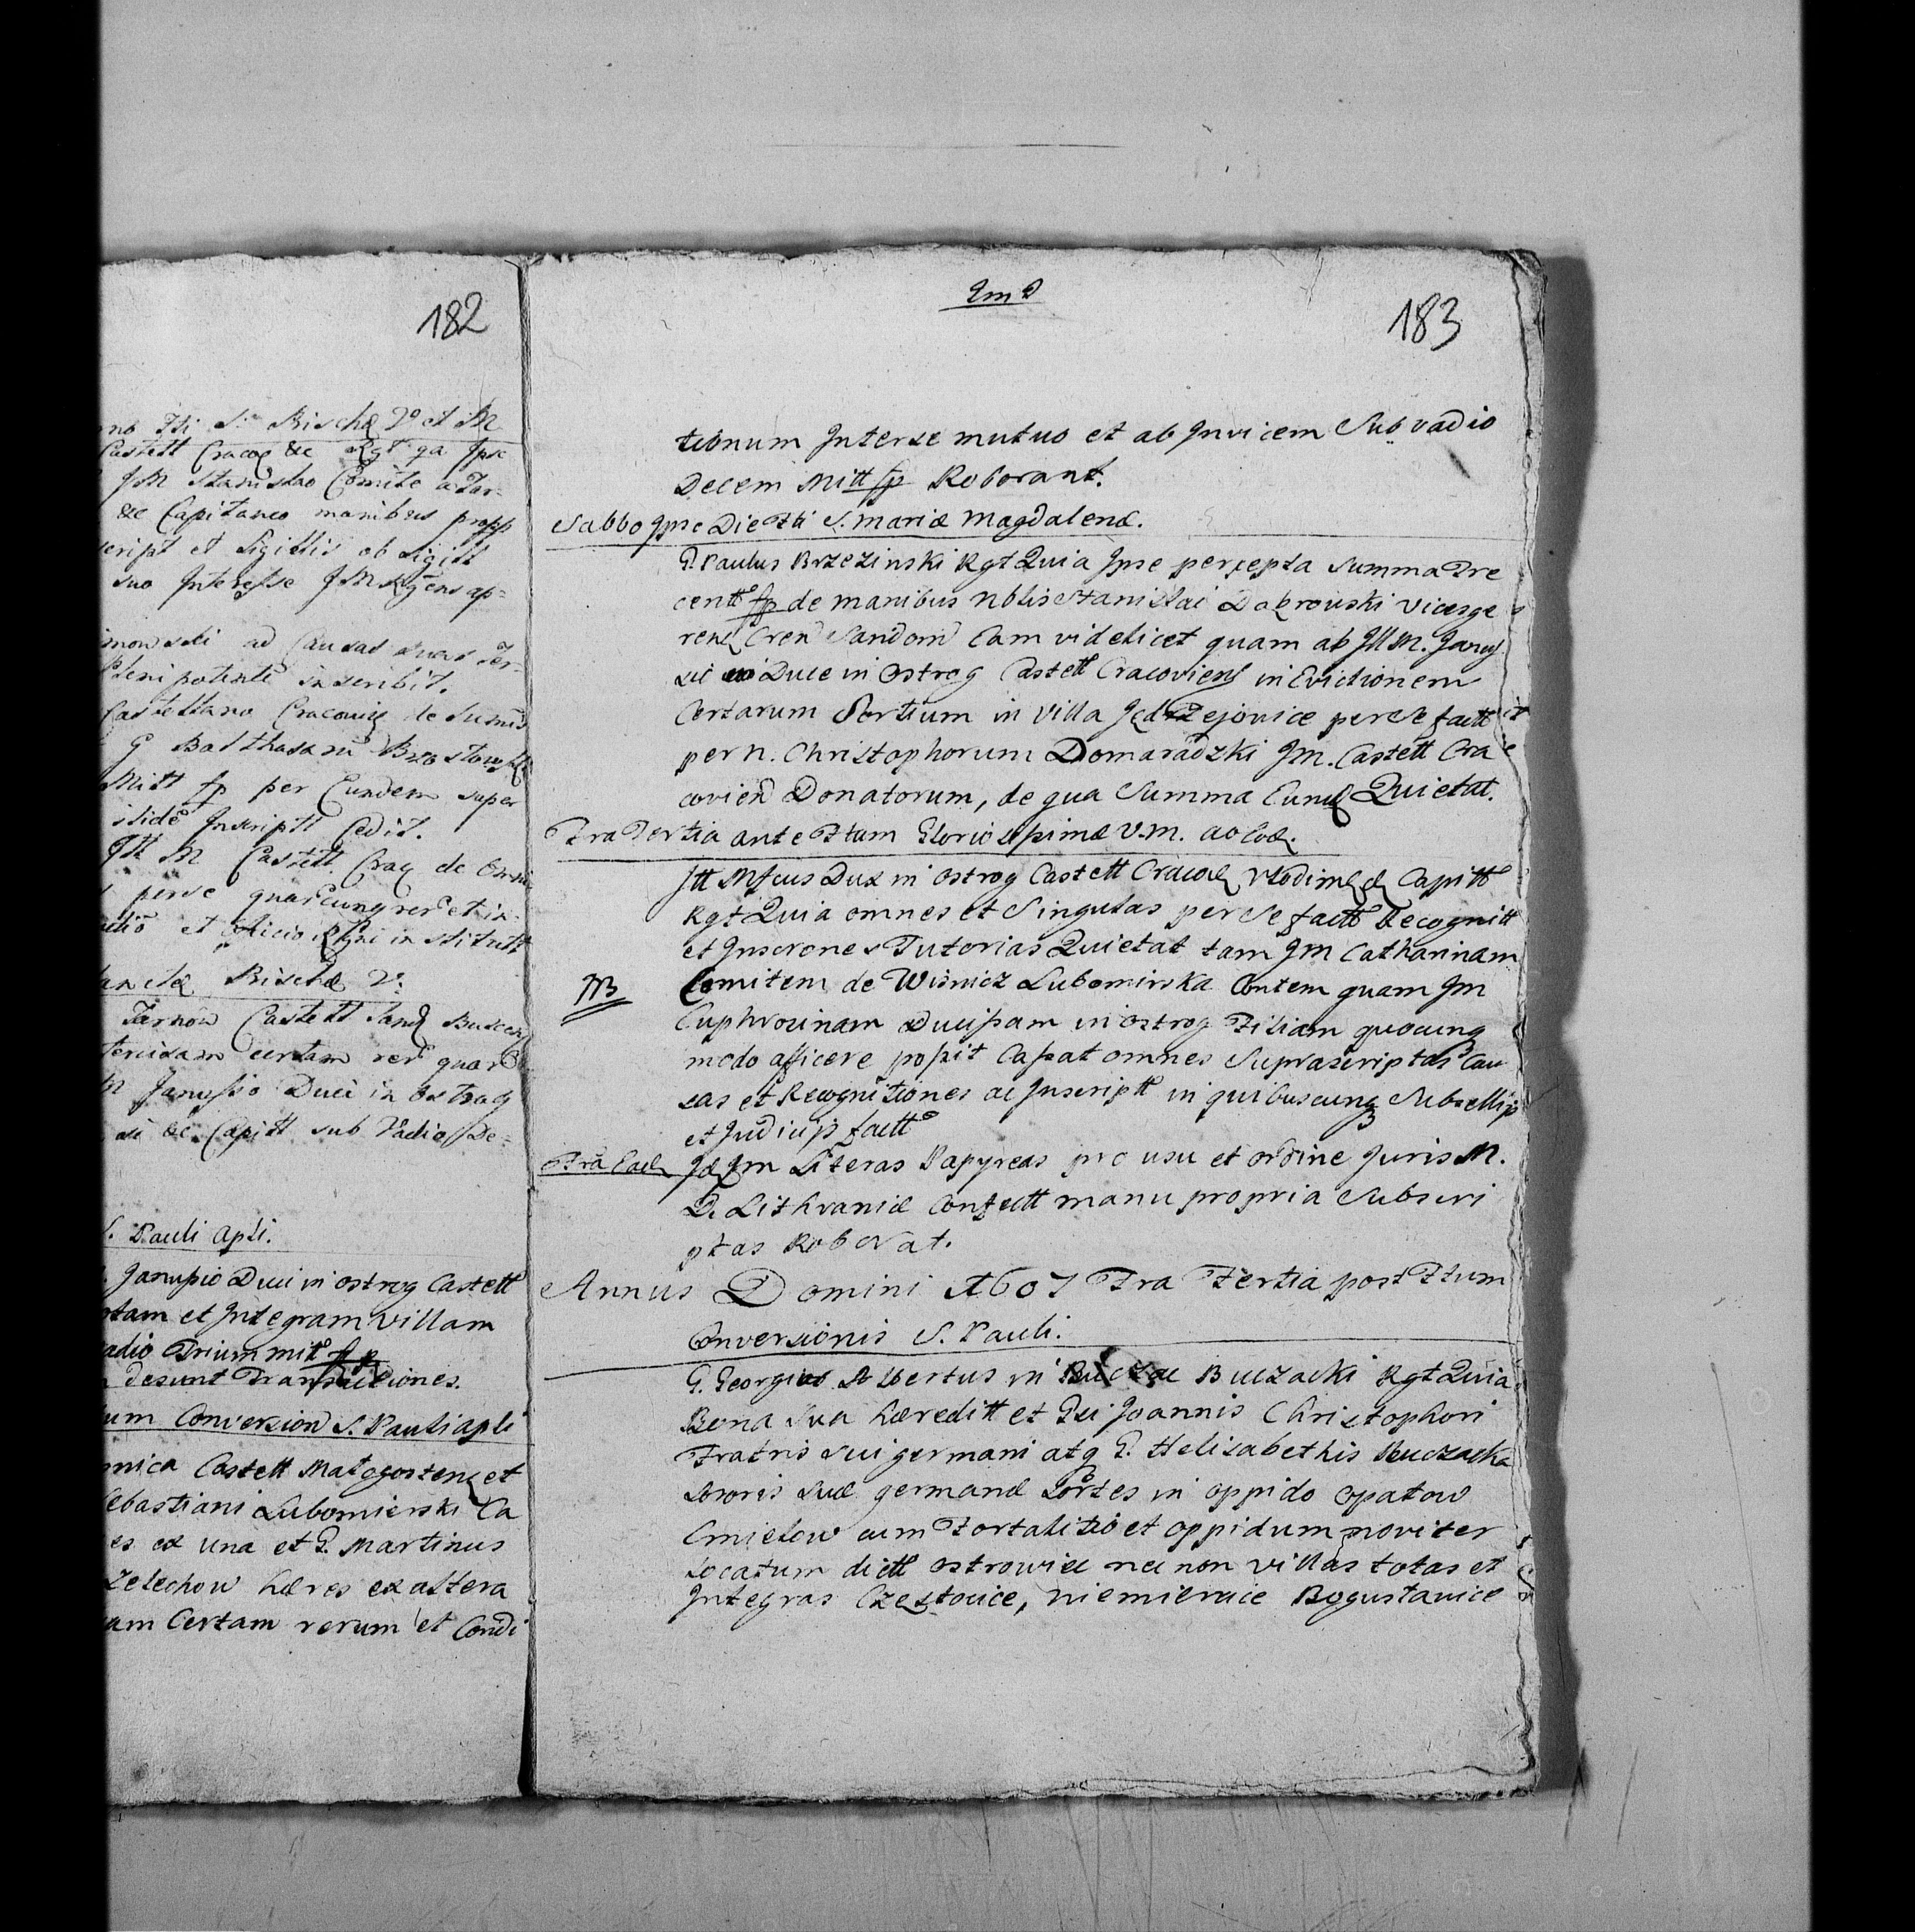 182
Castell Cracov &c Rgt qa Ipse
JM Stanislao Comite a Tar=
&c Capitaneo manibus propp
script et Sigillis ob sigill
suo Interesse JM Regens ap=
mowski ad Causas suas Ter=
Plenipotente inscribit.
Castellano Cracovie de Sumis
G Balthasam Brzostowski
Mill fp per Eundem super
Inscriptt Cedit.
Itt M Castell. Crac de Omni
perse quascunq rer et in=
et officio Regni institutt
Tarnow Castell Sand Buscen
certam rer quar
Janussio Duci in Ostrog
&c. Capitt sub Vadio De=
S. Pauli Apli.
Janussio Duci in Ostrog Castell
totam et Integram Villam
vadio Trium mill fp
desunt Transactiones.
um Conversion S. Pauli apli
mica Castell Małogosten et
Sebastiani Lubomierski Ca
es ex una et G. Martinus
Zelechow hæres ex altera
am Certam rerum et Condi
183
tionum Interse mutuo et ab Invicem Sub vadio
Decem Mill fp Roborant.
Sabbo Ipse Die Fti S. Mariæ Magdalenæ.
G. Paulus Brzezinski Rgt Quia Ipse percepta Summa Tre
centt fp de manibus Nblis Stanislai Dabrowski Vicesge
rens Cren Sandom Eam videlicet quam ab Jll M. Janus
sii Duce in Ostrog Castell Cracoviens in Evictionem
Certarum Sortium in Villa Jędrzejovice per se factt
per N. Christophorum Domaradzki JM. Castell Cra
covien Donatorum, de qua Summa Eund Quietat.
Fra Tertia ante Ftum Gloriosissimæ V.M. ao eod.
Jll Mfcus Dux in Ostrog Castell Cracov Wlodim & Capitt
Rgt Quia omnes et Singulas per Se factt Recognitt
et Inscrones Tutorias Quietat tam JM Catharinam
NB Comitem de Wisnicz Lubomirska Contem quam Jm
Euphrosinam Ducissam in Ostrog Filiam quocunq
modo afficere possit Cassat omnes Suprascriptas Cau
sas et Recognitiones ac Inscriptt in quibuscunq Subsellijs
et Judicijs factt
Fra Ead Id Jm Literas Papyreas pro usu et ordine Juris M.
D. Lithvaniæ Confectt manu propria Subscri
ptas Roborat.
Annus Domini 1607 Fra Tertia post Ftum
Conversionis S. Pauli.
G. Georgius Albertus in Buczacz Buczacki Rgt Quia
Bona Sua hæreditt et Gsi Joannis Christophori
Fratris sui germani atq G. Helisabethis Buczacka
Sororis Suæ germanæ Sortes in oppido Opatow
Cmielow cum Fortalitio et oppidum noviter
Locatum dictt Ostrowiec nec non Villas totas et
Integras Częstocice, Niemienice Boguslawice